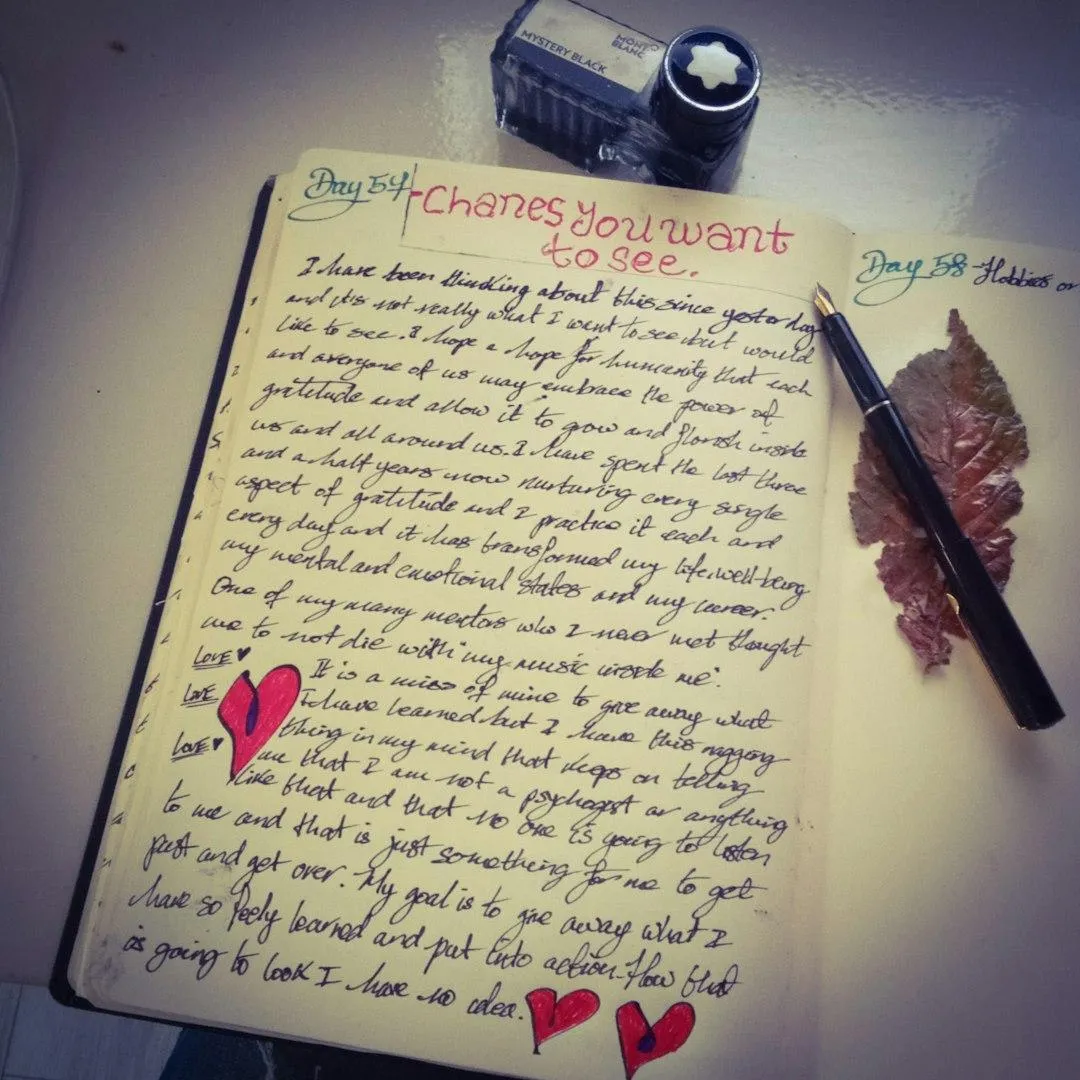 MONT
BLANC
MYSTERY BLACK
Day 57 - Chanes You want
to see.
I have been thinking about this since yesterday
and it's not really what I want to see but would
like to see. I hope a hope for humanity that each
and everyone of us may embrace the power of
gratitude and allow it to grow and florish inside
us and all around us. I have spent the last three
and a half years now nurturing every single
aspect of gratitude and I practice it each and
every day and it has transformed my life, well-being
my mental and emotional states and my career.
One of my many mentors who I never met thought
me to not die with "my music inside me".
LOVE ♥
It is a miss of mine to give away what
LOVE
I have learned but I have this nagging
thing in my mind that keps on telling
LOVE ♥
me that I am not a psychogst or anything
like that and that no one is going to listen
to me and that is just something for me to get
past and get over. My goal is to give away what I
have so learned and put into action. How that
is going to look I have no idea.
Day 58 - Hobbies or